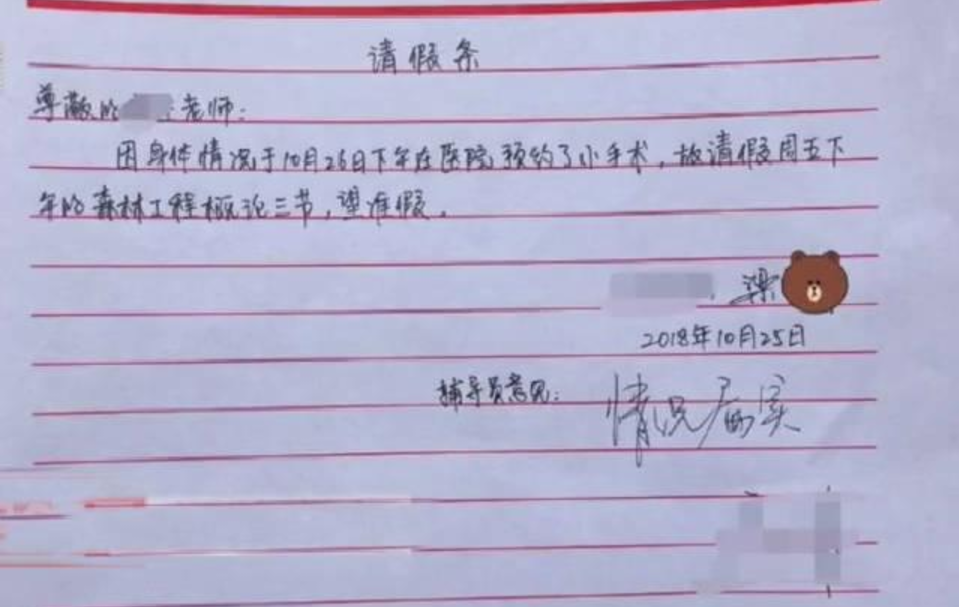 请假条
尊敬的老师:
因身体情况于10月26日下午在医院预约了小手术,故请假周五下
午的森林工程概论三节,望准假。
梁
2018年10月25日
辅导员意见:情况属实